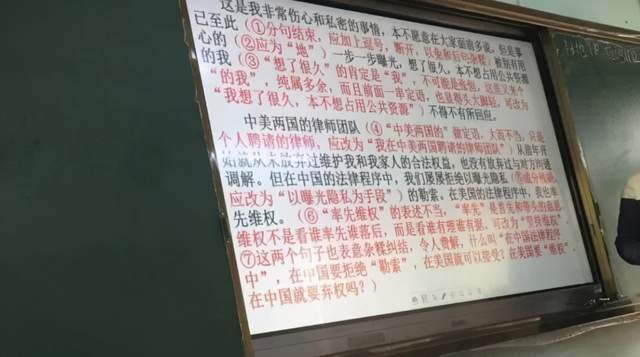 这是我非常伤心和私密的事情，本不愿意在大家面前多说，但是事
已至此（①分句结束，应加上逗号，断开，以免和后句杂糅）被别有用
心的（②应为“地”）一步一步曝光，想了很久，本不想占用公共资源
的我（③“想了很久”的肯定是“我”，不可能是张恒，这里又来个
“的我”，纯属多余，而且前面一串定语，也显得头大脚短，可改为
“我想了很久，本不想占用公共资源”）不得不有所回应。
中美两国的律师团队（④“中美两国的”做定语，大而不当，只是
个人聘请的律师，应改为“我在中美两国聘请的律师团队”）从前年开
始就从未放弃过维护我和我家人的合法权益，也没有放弃过与对方沟通
调解。但在中国的法律程序中，我们屡屡拒绝以曝光隐私（
应改为“以曝光隐私为手段”）的勒索。在美国的法律程序中，我也率
先维权。（⑥“率先维权”的表述不当，“率先”是
维权不是看谁率先谁落后，而是看谁有理谁有据，可改为
⑦这两个句子也表意杂糅纠结，令人费解，什么叫“在中国法律程序
中”，在中国要拒绝“勒索”，在美国就可以接受？在美国要“维权”
在中国就要弃权吗？）